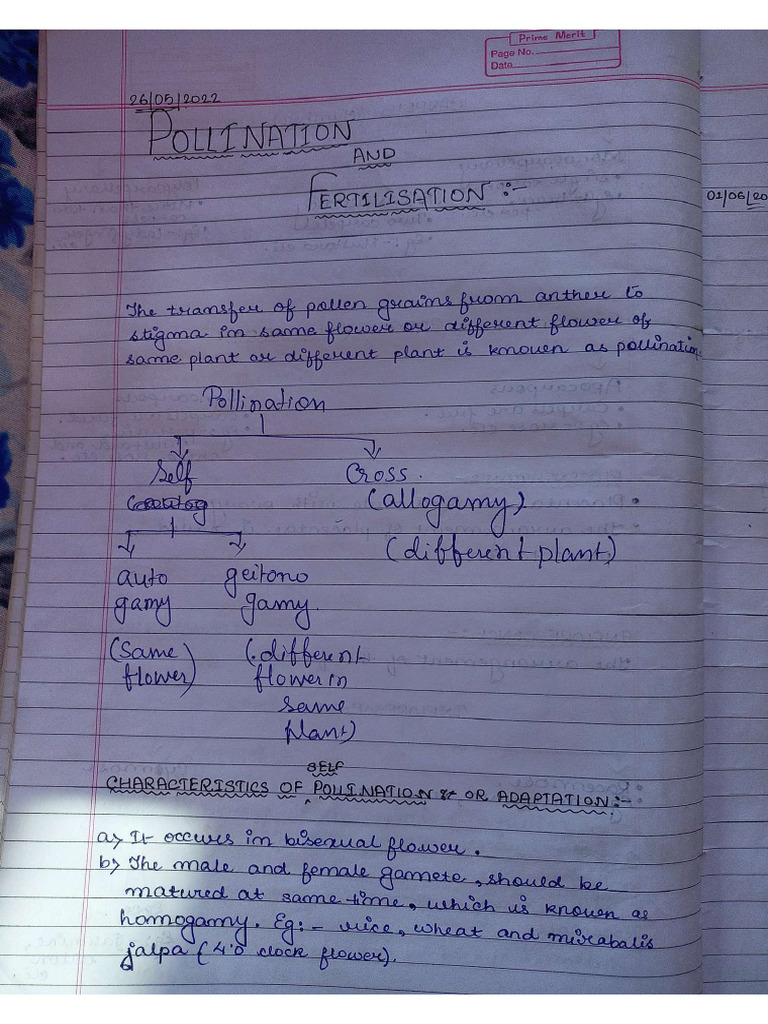 Prime Merit
Page No.
Date
26/05/2022
POLLINATION
AND
FERTILISATION :-
01/06/20
The transfer of pollen grains from anther to
stigma in same flower or different flower of
same plant or different plant is knowen as pollination.
Pollination
Self Cross.
(allogamy)
(different plant)
auto geitono
gamy gamy.
(same (different
flower) flower in
same
plant)
SELF
CHARACTERISTICS OF POLLINATION & OR ADAPTATION:-
a) It occurs in bisexual flower.
b) The male and female gamete, should be
matured at same time, which is known as
homogamy. Eg:- rice, wheat and mirabalis
jalpa (4'0 clock flower).